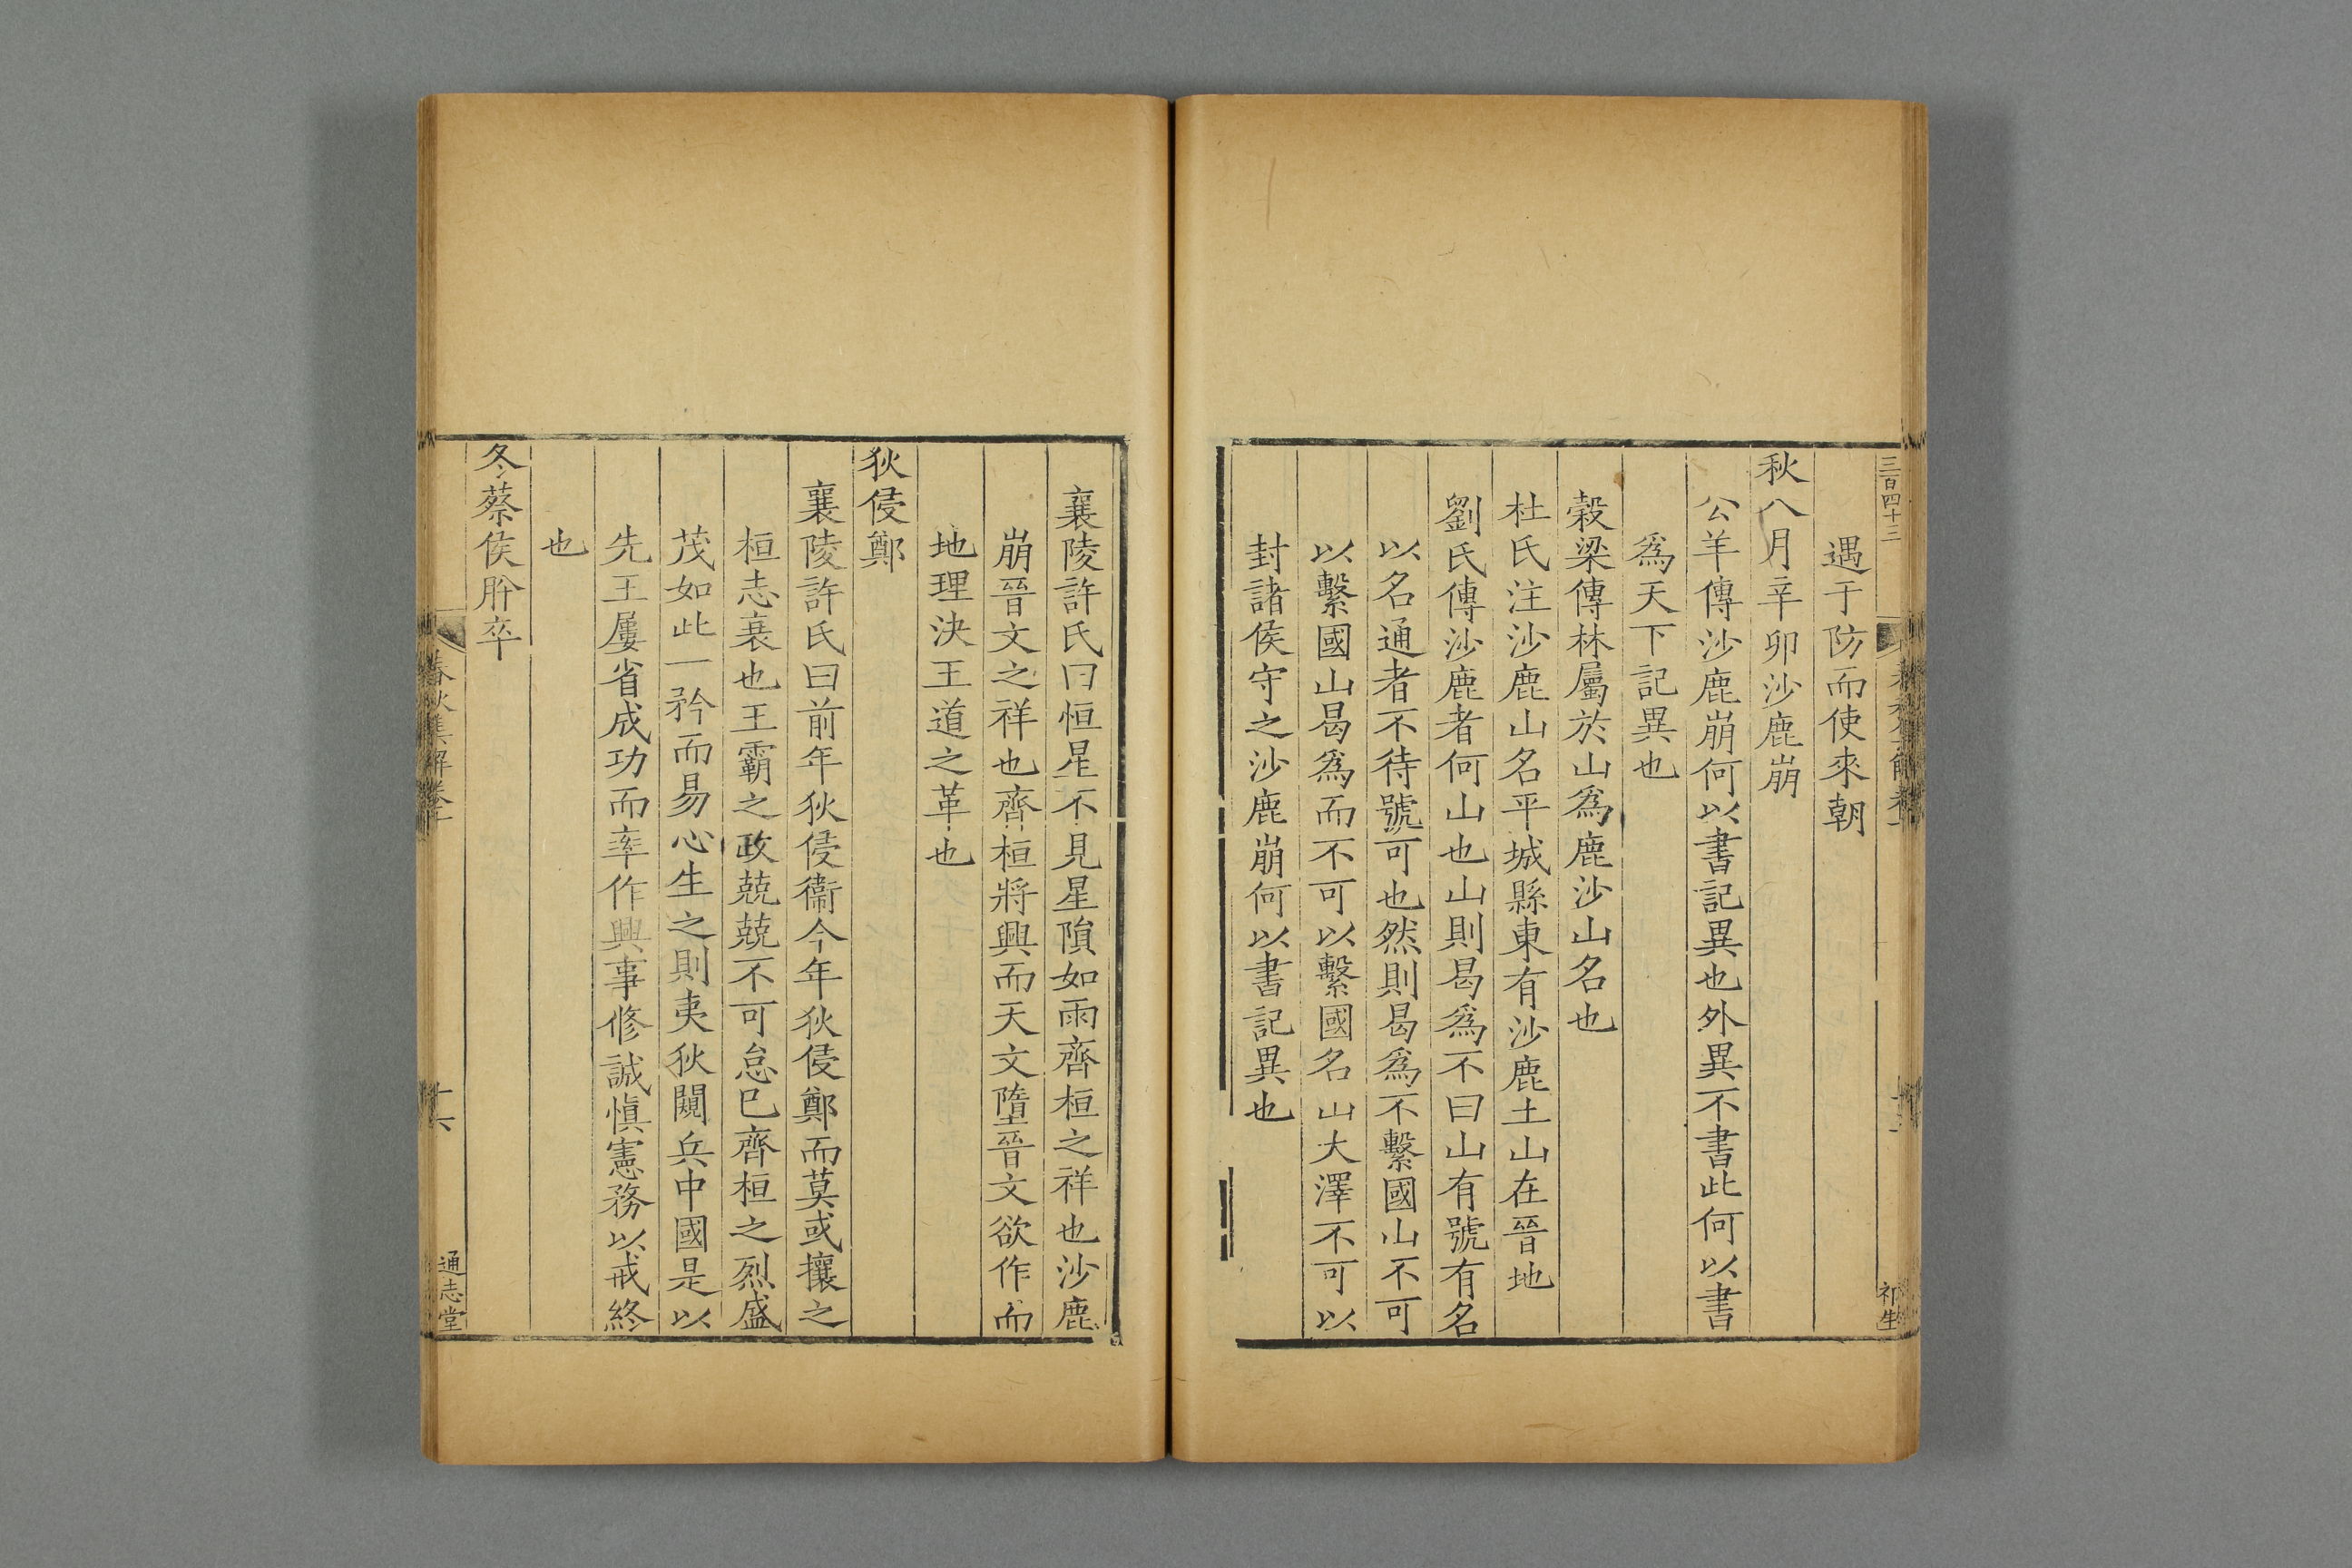 三百四十三
祁生
遇于防而使來朝
秋八月辛卯沙鹿崩
公羊傳沙鹿崩何以書記異也外異不書此何以書
爲天下記異也
穀梁傳林屬於山爲鹿沙山名也
杜氏注沙鹿山名平城縣東有沙鹿土山在晉地
劉氏傳沙鹿者何山也山則曷爲不曰山有號有名
以名通者不待號可也然則曷爲不繫國山不可
以繫國山曷爲而不可以繫國名山大澤不可以
封諸侯守之沙鹿崩何以書記異也
襄陵許氏曰恒星不見星隕如雨齊桓之祥也沙鹿
崩晉文之祥也齊桓將興而天文墮晉文欲作而
地理決王道之革也
狄侵鄭
襄陵許氏曰前年狄侵衞今年狄侵鄭而莫或攘之
桓志衰也王霸之政兢兢不可怠巳齊桓之烈盛
茂如此一矜而易心生之則夷狄闚兵中國是以
先王屢省成功而率作興事修誠愼憲務以戒終
也
冬蔡侯肸卒
春秋集解卷十
十六
通志堂